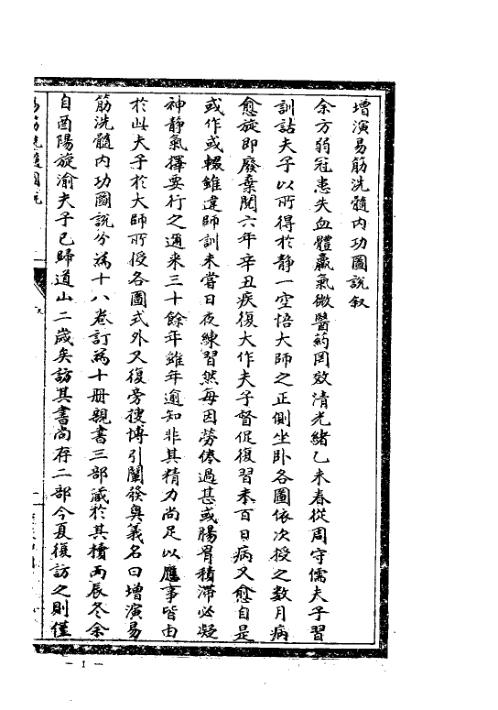 增演易筋洗髓內功圖說叙
余方弱冠患失血體羸氣微醫药罔效清光緒乙未春從周守儒夫子習
訓詁夫子以所得於静一空悟大师之正側坐卧各圖依次授之数月病
愈旋即廢棄閱六年辛丑疾復大作夫子督促復習未百日病又愈自是
或作或輟雖違師訓未嘗日夜練習然每因勞倦過甚或腸胃積滞必凝
神静氣擇要行之邇来三十餘年雖年逾知非其精力尚足以應事皆由
於此夫子於大師所授各圖式外又復旁搜博引闡發奥義名曰增演易
筋洗髓內功圖說分為十八卷訂為十冊親書三部藏於其櫝丙辰冬余
自酉陽旋渝夫子已歸道山二歲矣訪其書尚存二部今夏復訪之則僅
— 1 —